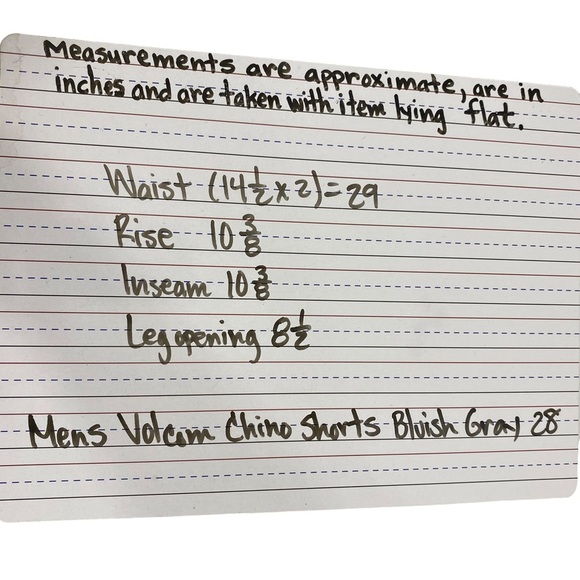 Measurements are approximate, are in
inches and are taken with item lying flat.
Waist (14 1/2 x 2) = 29
Rise 10 3/8
Inseam 10 3/8
Leg opening 8 1/2
Mens Volcom Chino Shorts Bluish Gray 28